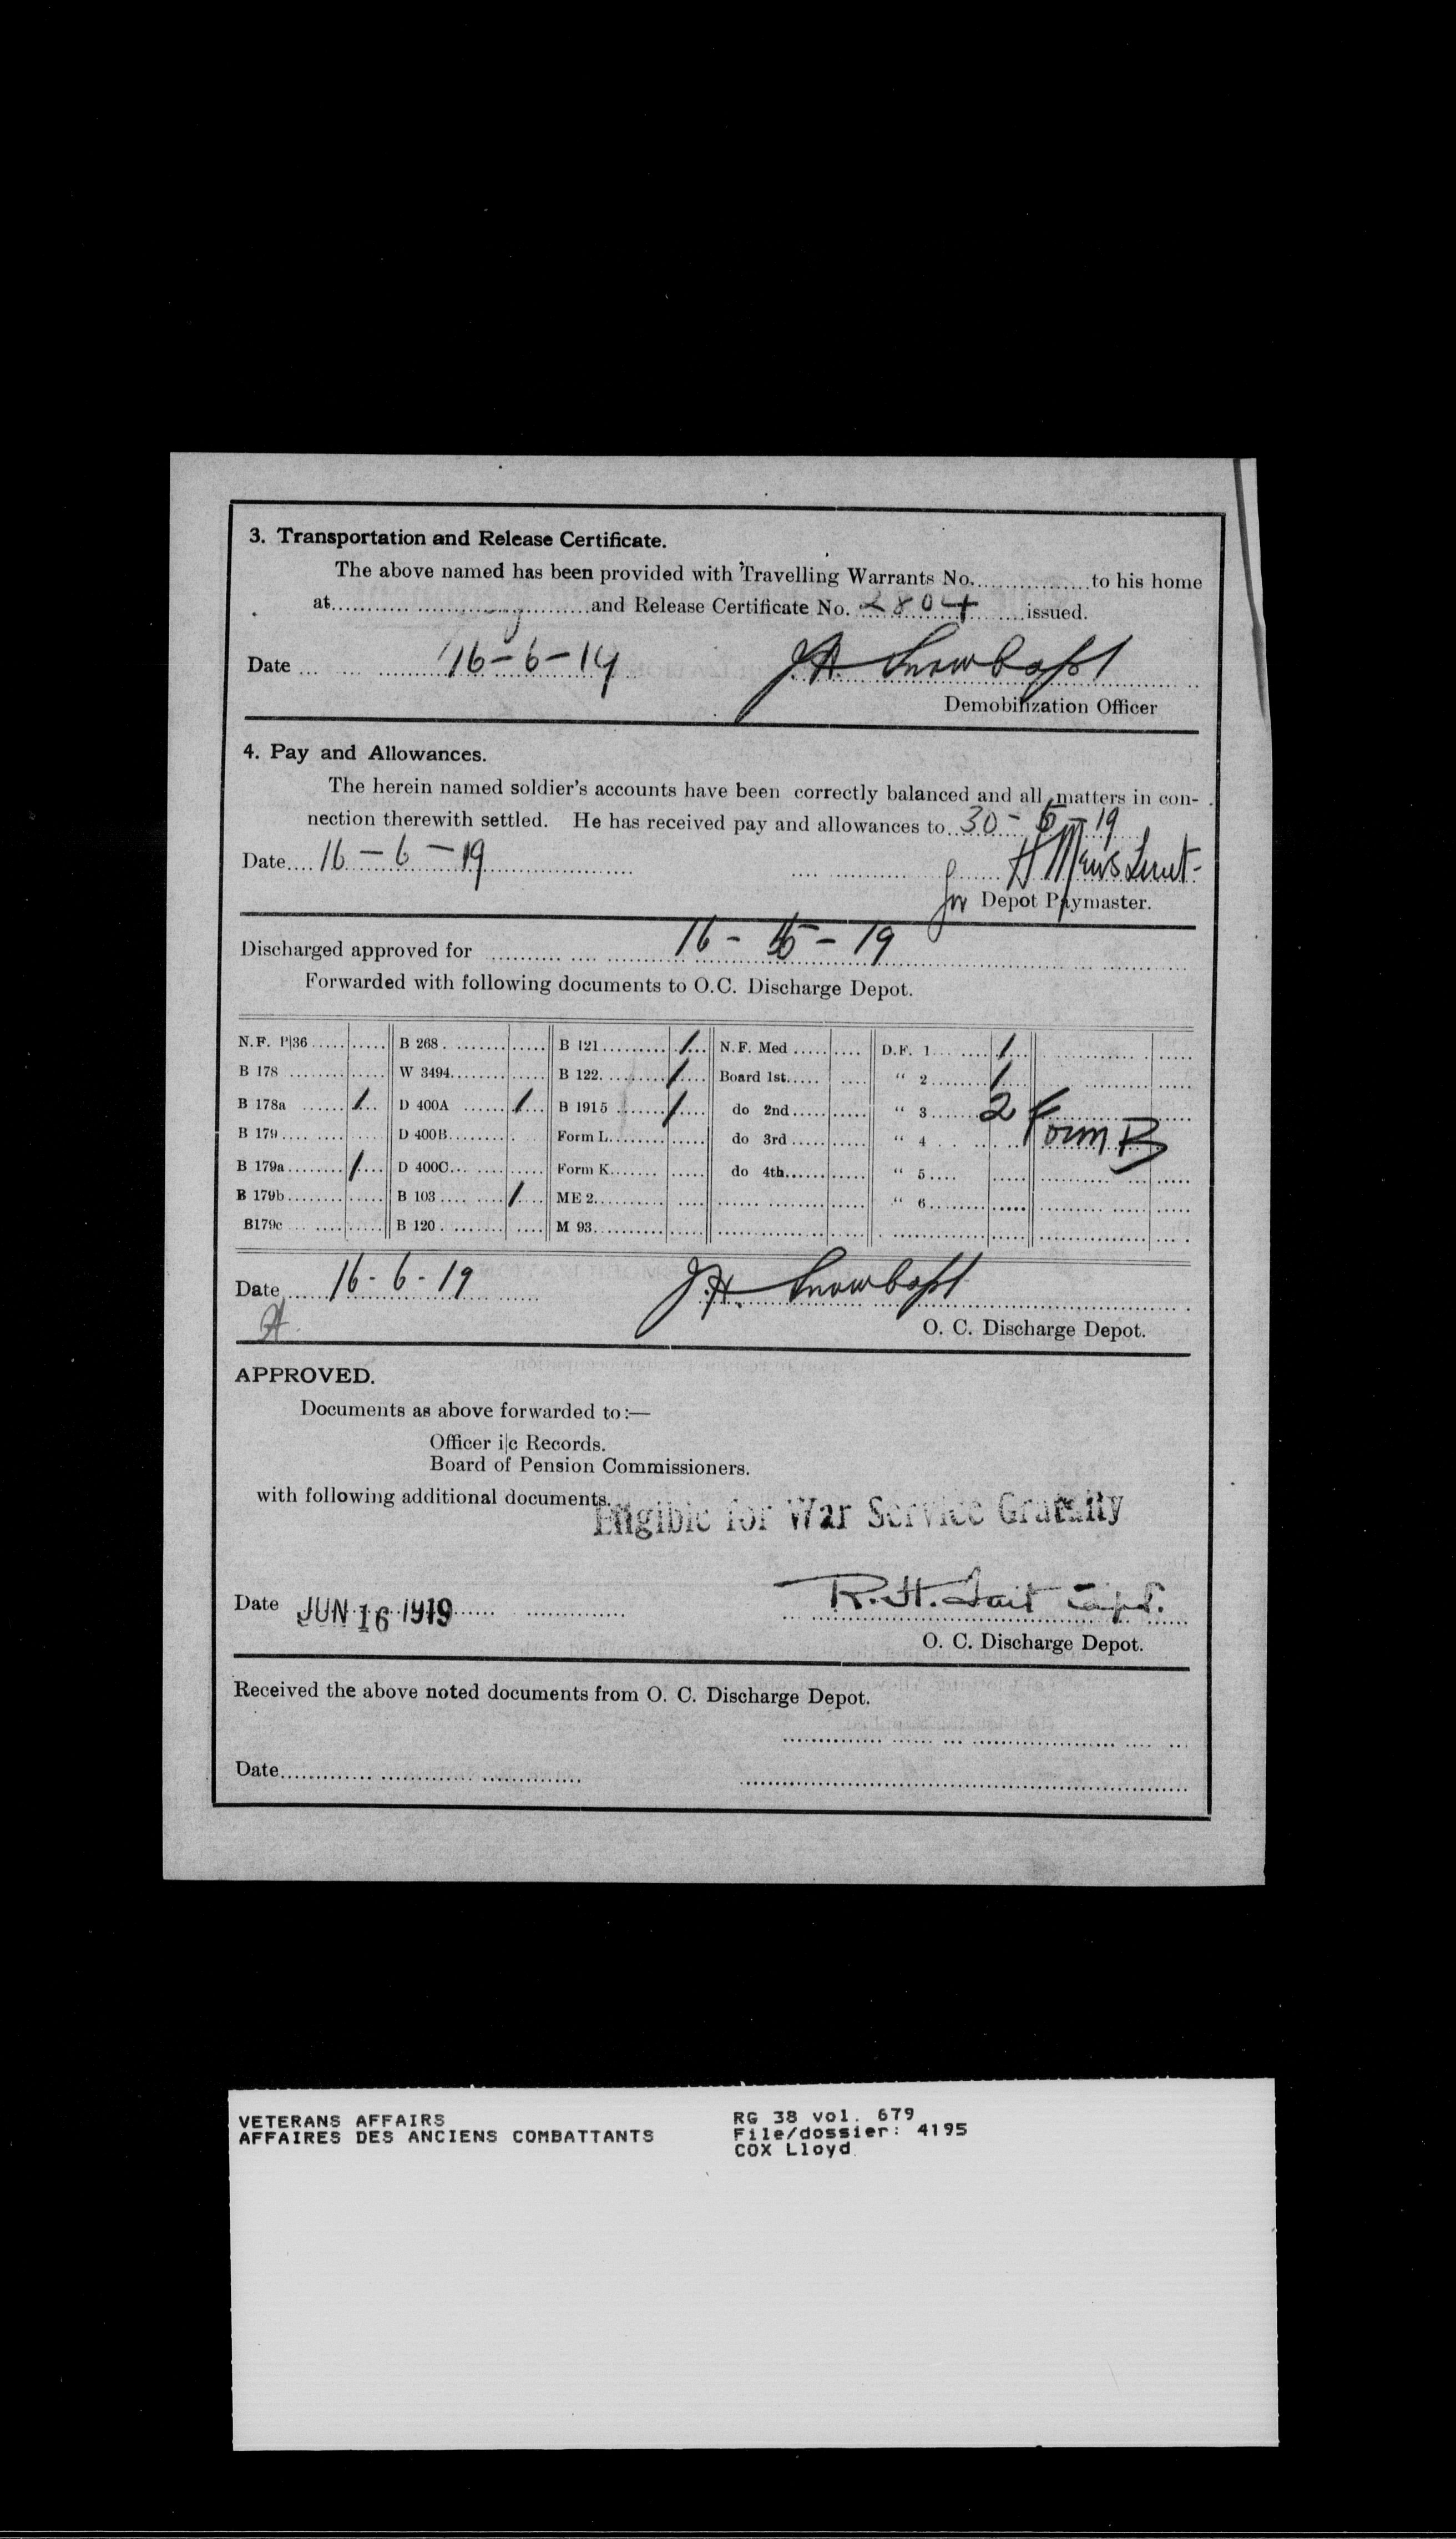 3. Transportation and Release Certificate.
The above named has been provided with Travelling Warrants No. to his home
at and Release Certificate No. 2804 issued.
Date 16-6-19
Demobilization Officer
4. Pay and Allowances.
The herein named soldier's accounts have been correctly balanced and all matters in con-
nection therewith settled. He has received pay and allowances to 30-5-19
Date 16-6-19 H Mews Lieut.
for Depot Paymaster.
Discharged approved for 16-6-19
Forwarded with following documents to O.C. Discharge Depot.
N.F. P|36 B 268 B 121 1 N.F. Med D.F. 1 1
B 178 W 3494 B 122 1 Board 1st " 2 1
B 178a 1 D 400A 1 B 1915 1 do 2nd " 3 2
B 179 D 400B Form L do 3rd " 4 Form B
B 179a 1 D 400C Form K do 4th " 5
B 179b B 103 1 ME 2 " 6
B179c B 120 M 93
Date 16-6-19
O. C. Discharge Depot.
APPROVED.
Documents as above forwarded to:—
Officer i|c Records.
Board of Pension Commissioners.
with following additional documents.
Eligible for War Service Gratuity
Date JUN 16 1919 R. H. Tait Capt.
O. C. Discharge Depot.
Received the above noted documents from O. C. Discharge Depot.
Date
VETERANS AFFAIRS RG 38 vol. 679
AFFAIRES DES ANCIENS COMBATTANTS File/dossier: 4195
COX Lloyd